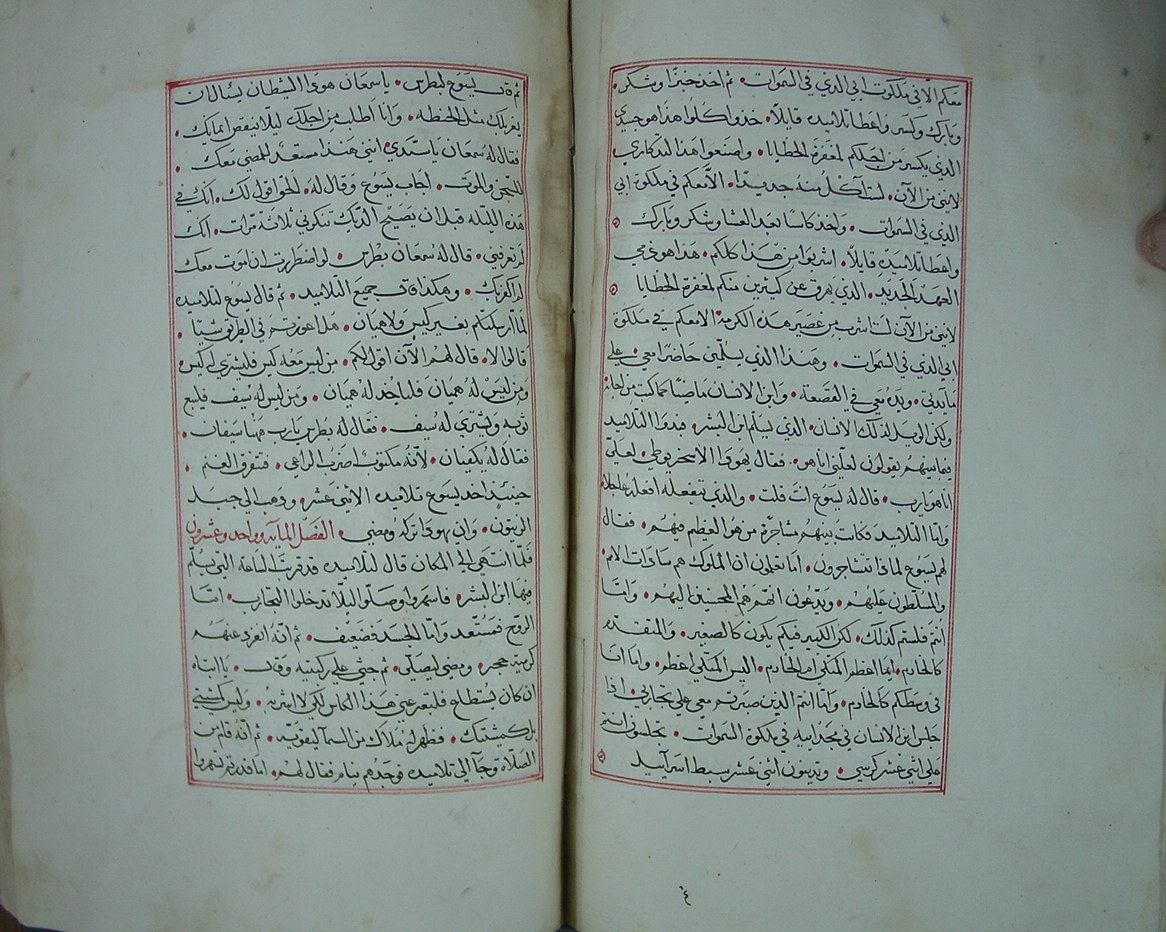 معكم الا في ملكوت ابي الذي في السموات • ثم اخذ خبزا وشكر •
وبارك وكسر واعطا تلاميده قايلا • خذوا كلوا هذا هو جسدي
الذي يكسر من اجلكم لمغفرة الخطايا • واصنعوا هذا لتدكاري •
لانني من الآن • لست آكل منه جديدا • الا معكم في ملكوة ابي
الذي في السموات • واخذ كاسا بعد العشا وشكر وبارك
واعطا تلاميده قايلا • اشربوا من هذا كلكم • هذا هو دمي
العهد الجديد • الذي يهرق عن كثيرين منكم لمغفرة الخطايا
لانني من الآن لست اشرب من عصير هذه الكرمه • الا معكم في ملكوة
ابي الذي في السموات • وهنذا الذي يسلمني حاضرا معي • على
مايدتي • ويده معي في القصعة • وابن الانسان ماضيا كما كتب من اجله
ولكن الويل لذلك الانسان • الذي يسلم ابن البشر • فبدوا التلاميد
فيما بينهم يقولون لعلني انا هو • فقال يهودا الاسخريوطي • لعلي
انا هو يا رب • قال له يسوع انت قلت • والذي تفعله افعله عاجلا
واما التلاميد فكانت بينهم مشاجرة من هو العظيم فيهم • فقال
لهم يسوع لماذا تتشاجرون • اما تعلمون ان الملوك هم سادات الامم
والمسلطون عليهم • ويدعون انهم هم المحسنين اليهم • واما
انتم فلستم كذلك • لكن الكبير فيكم يكون كالصغير • والمتقدم
كالخادم • ايما اعظم المتكي ام الخادم • اليس المتكي اعظم • واما انا
في وسطكم كالخادم • واما انتم الذين صبرتم معي على تجاربي • اذا
جلس ابن الانسان في مجد ابيه في ملكوة السموات • تجلسون انتم
على اثني عشر كرسي • وتدينون اثني عشر سبط اسرآئيل
٤
ثم قال يسوع لبطرس • يا سمعان هودا الشيطان يسال ان
يغربلك مثل الحنطه • وانا اطلب من اجلك ليلا ينقص ايمانك •
فقال له سمعان يا سيدي • انني هنذا مستعد للمضي معك •
للسجن والموت • اجاب يسوع وقال له • الحق اقول لك • انك في
هذه الليله قبل ان يصيح الديك تنكرني ثلاثة مرات • انك
لم تعرفني • قال له سمعان بطرس • لو اضطررت ان اموت معك
لم انكرك • وهكذا قال جميع التلاميد • ثم قال يسوع لتلاميده
لما ارسلتكم بغير كيس ولا هميان • هل اعوزتم في الطريق شيئا
قالوا لا • قال لهم الآن اقول لكم • من ليس معه كيس فليشتري له كيس
ومن ليس له هميان فلياخد له هميان • ومن ليس له سيف فليبع
ثوبه ويشتري له سيف • فقال له بطرس يا رب ههنا سيفان •
فقال له يكفيان • لانه مكتوب اضرب الراعي • فتفرق الغنم •
حينئذ اخد يسوع تلاميده الاثنى عشر • ودهب الى جبل
الزيتون • وان يهودا تركه ومضي • الفصل المايه وواحد وعشرون
فلما انتهى الى المكان قال لتلاميده قد قربت الساعة التي يسلم
فيها ابن البشر • فاسهروا وصلوا ليلا تدخلوا التجارب • اما
الروح فمستعد واما الجسد فضعيف • ثم انه انفرد عنهم
كرمية حجر • ومضى ليصلي • ثم جثى على ركبتيه وقال • يا ابتاه
ان كان يستطاع فلتعبر عني هذا الكاس لكي لا اشربه • وليس كمشيتي
بل كمشيتك • فظهر له ملاك من السما ليقويه • ثم انه قام من
الصلاة وجآ الى تلاميده فوجدهم نيام فقال لهم • اما قدرتم تسهروا